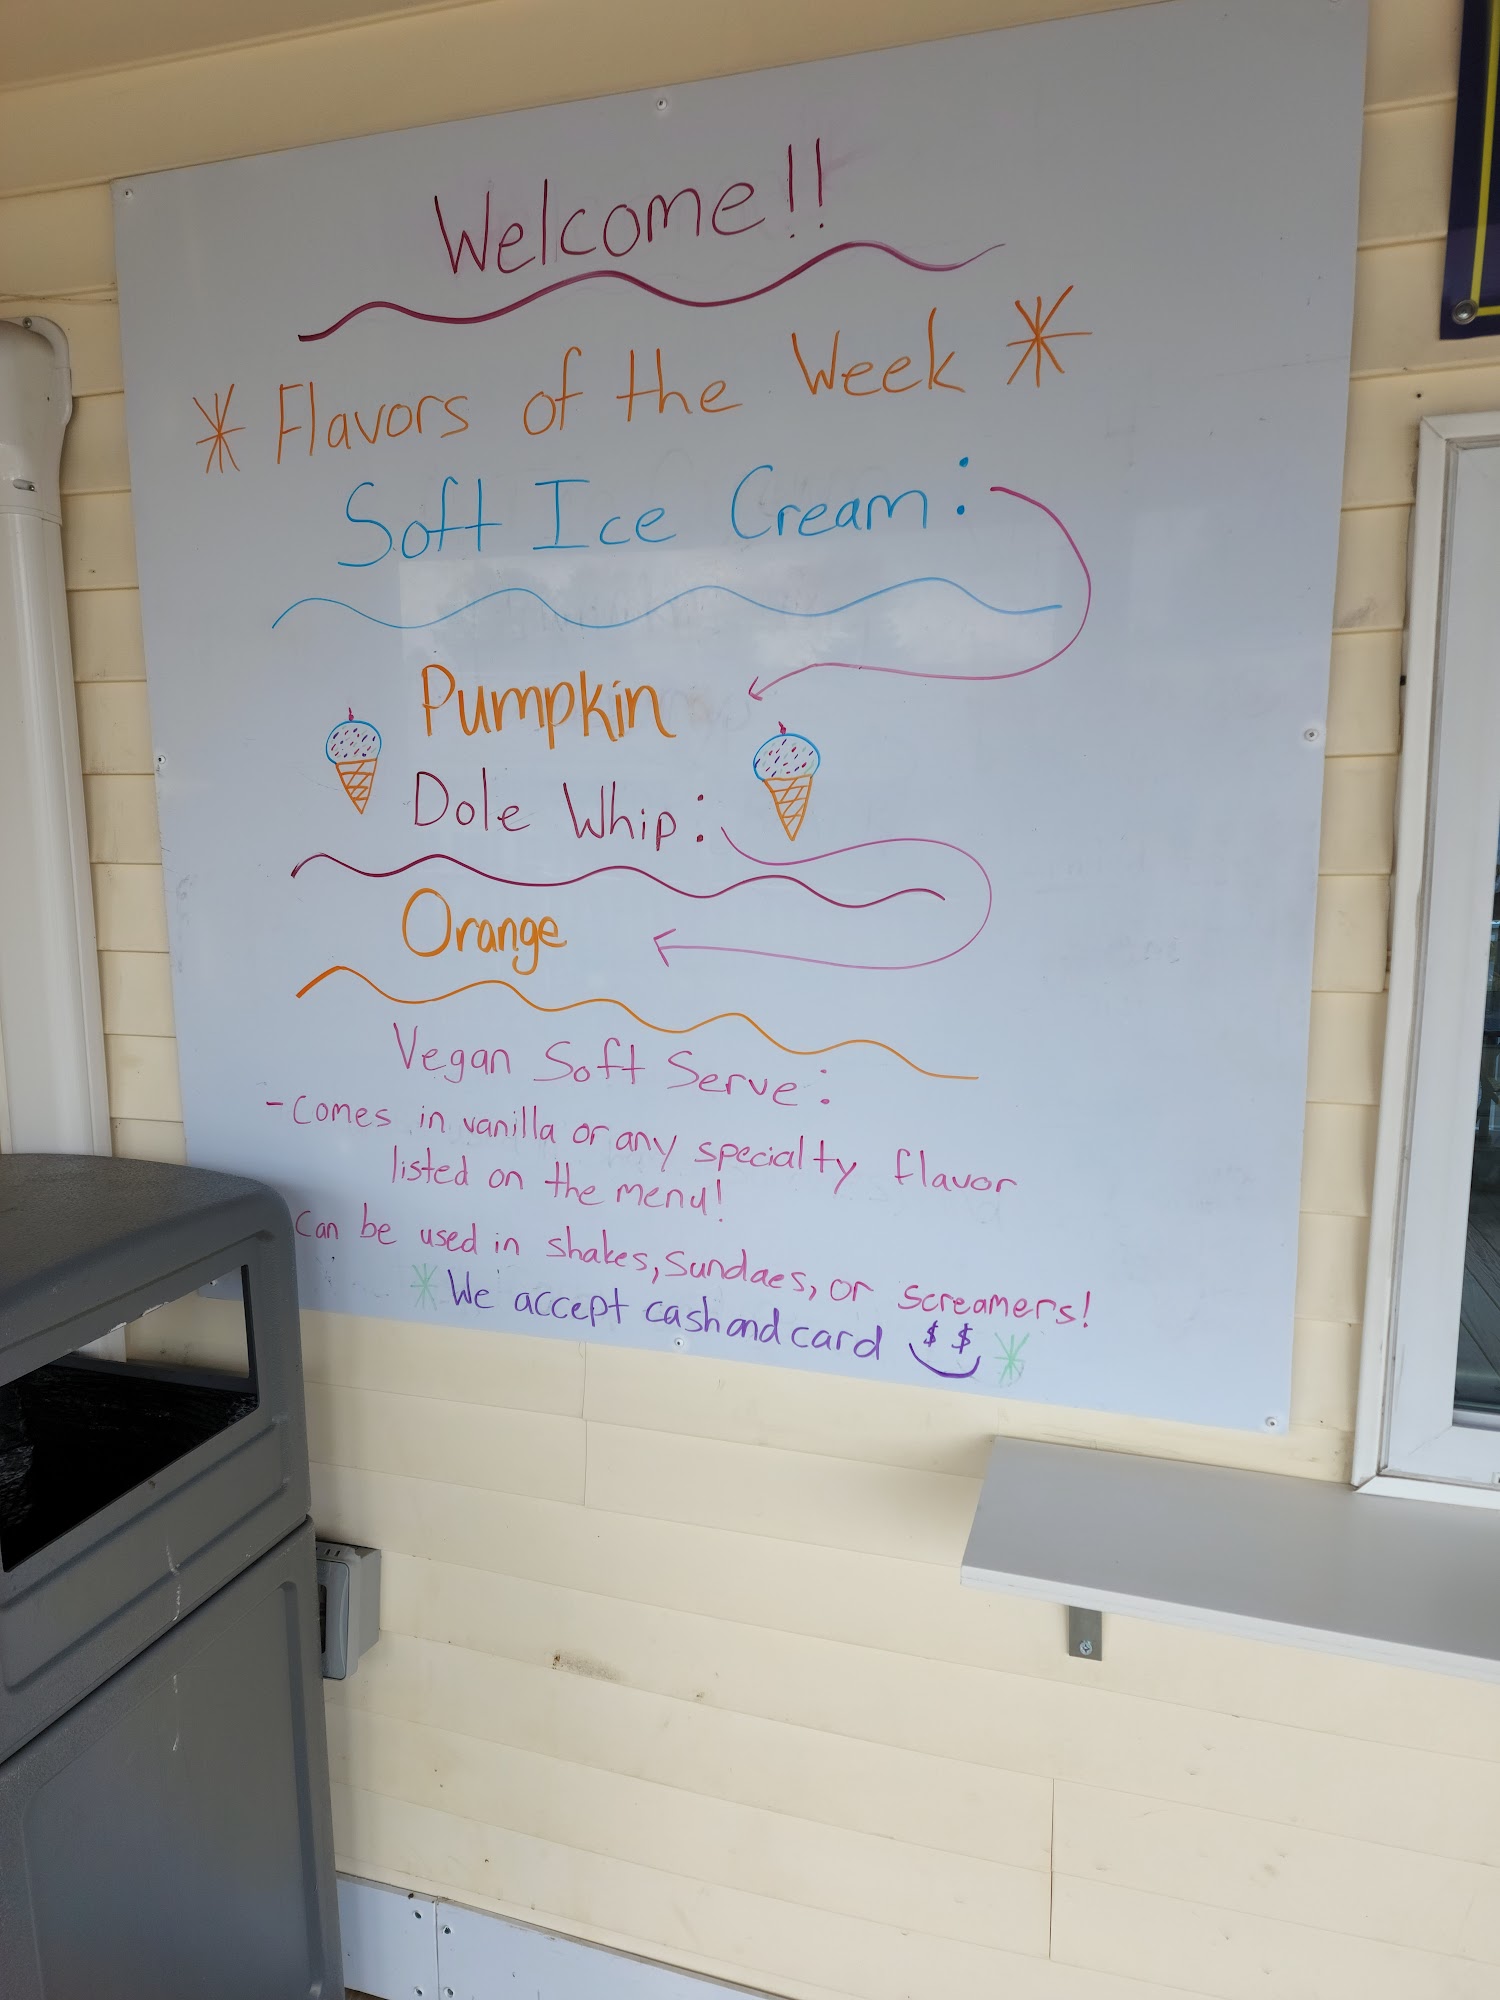 Welcome!!
* Flavors of the Week *
Soft Ice Cream:
Pumpkin
Dole Whip:
Orange
Vegan Soft Serve:
- Comes in vanilla or any specialty flavor
listed on the menu!
Can be used in shakes, Sundaes, or screamers!
* We accept cash and card $ $ *